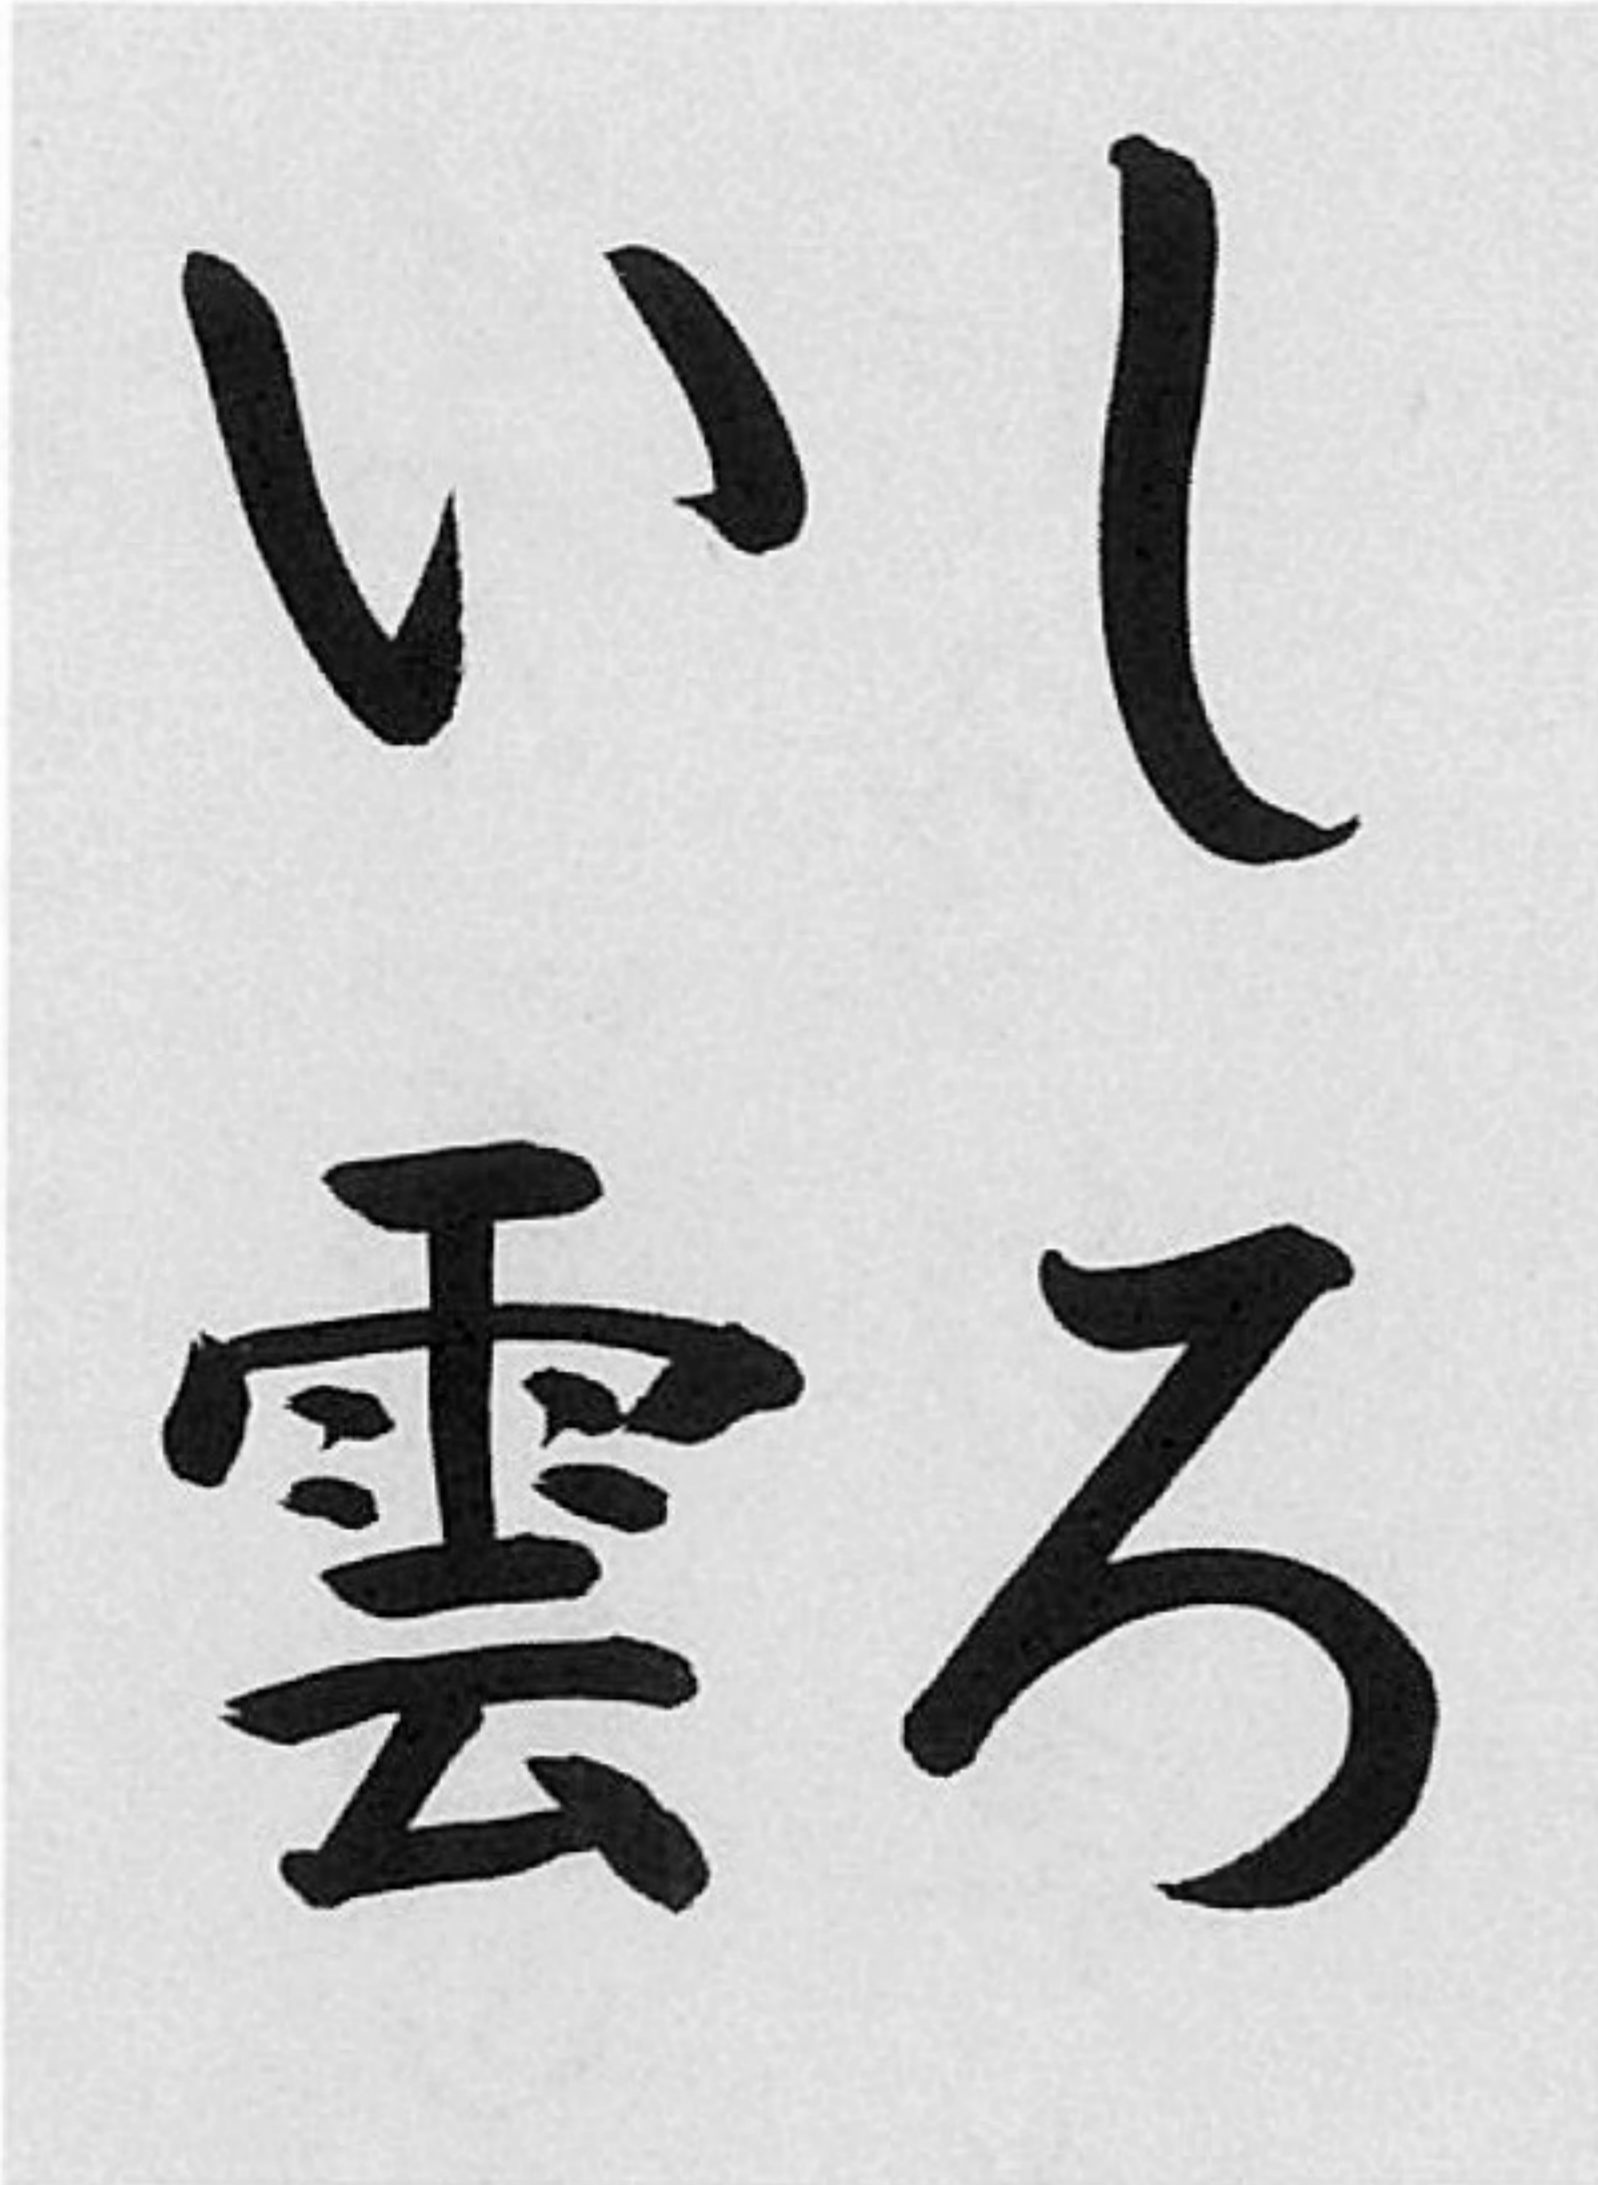 しろ
い雲